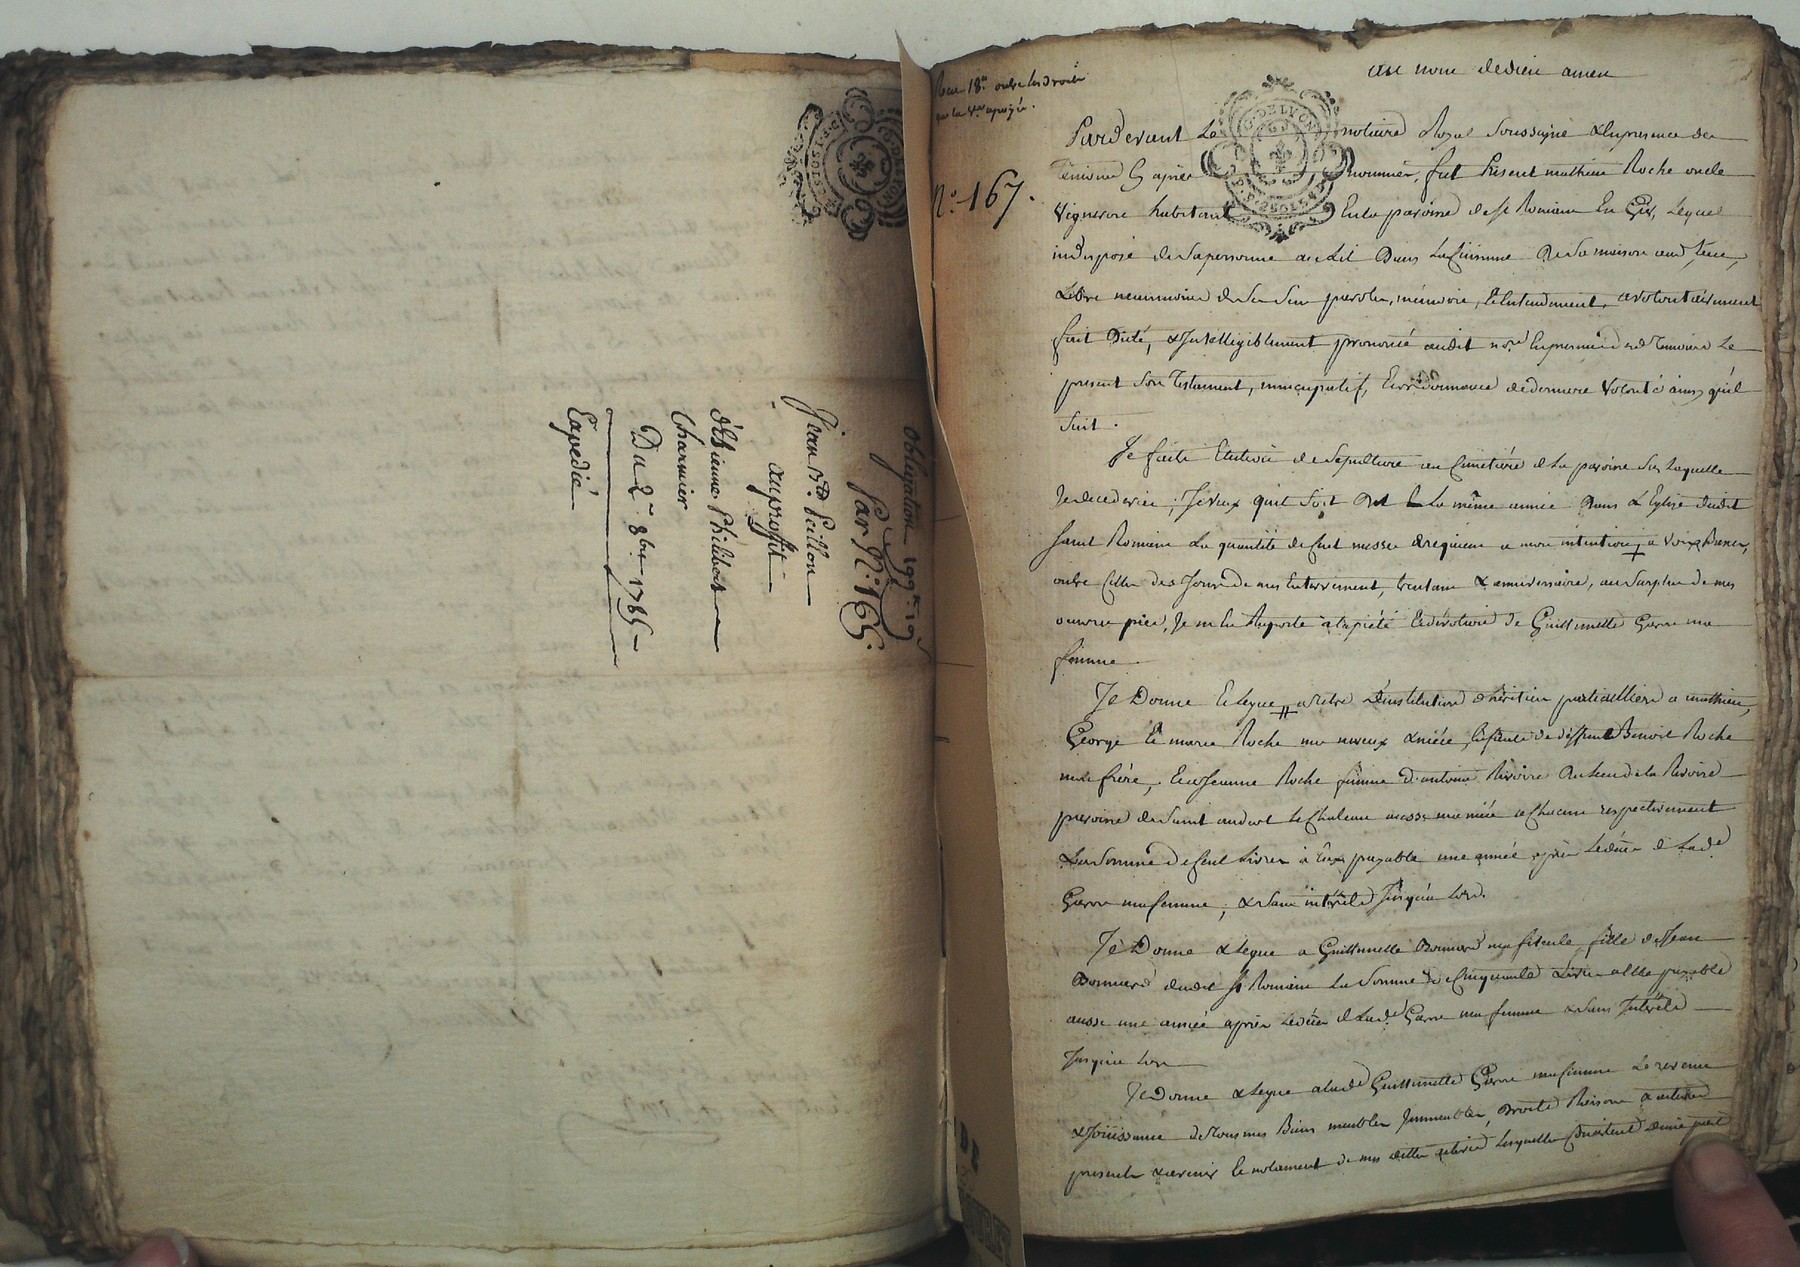 obligation 199# 19s
Par No. 165.
Jean Bte. Peillon
auproffit
d'Ethienne Philibert
Charmier
Du 2e. 8bre 1785
Expedié
outre les droits
No. 167.
Au nom de dieu amen
Pardevant Le notaire Royal Soussigné & En presence des
Temoins Cy après nommés, fut Present mathieu Roche oncle
Vigneron habitant En la paroisse de St Romain En Gier, Lequel
indisposé de Sa personne au Lit Dans La Cuisine De Sa maison
Libre neanmoins de Ses Sens parole, mémoire, & Entendement, a volontairement
fait Dicté, & Intelligiblement prononcé audit nore. En presence des d. Temoins Le
present Son Testament, nuncupatif, & ordonnance de derniere Volonté ainsy qu'il
Suit.
Je faits Election de Sepulture au Cimetière de La paroisse Sur Laquelle
Je decederai; Je veux qu'il Soit Dit La même année Dans L'Eglise dudit
Saint Romain La quantité de Cent messes de requiem a mon intention, a Voix Basse,
outre Celles des Jours De mes Enterrement, trentain & anniversaire, au Surplus de mes
œuvres pies, Je m'en Raporte a la piété & dévotion de Guillemette Garon ma
femme.
Je Donne & Legue a titre D'institution d'héritier particulliere a mathieu,
George & marie Roche mes neveux & niéce, Enfants de deffunt Benoit Roche
mon frère, & a Jeanne Roche femme d'antoine Rivoire Du Lieu de la Rivoire
paroisse de Saint andeol Le Chateau aussi ma niéce a Chacun respectivement
La Somme De Cent Livres à Eux payable une année après Le décès de Lade.
Garon ma femme, & Sans intérêts Jusqu'a Lors.
Je Donne & Legue a Guillemette Bonnard ma fileule, fille de Jean
Bonnard dudit St Romain La Somme de Cinquante Livres a Elle payable
aussi une année après Le décès de Lade. Garon ma femme & Sans Intérêts
Jusqu'a Lors
Je Donne & Legue a lade. Guillemette Garon ma femme Le revenu
& Jouissance de tous mes Biens meubles Immeubles, Droits Raisons & actions
presents & avenir & notament de mes dettes actives Lesquelles